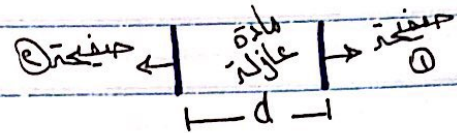 صفيحة
①
مادة
عازلة
صفيحة ②
d